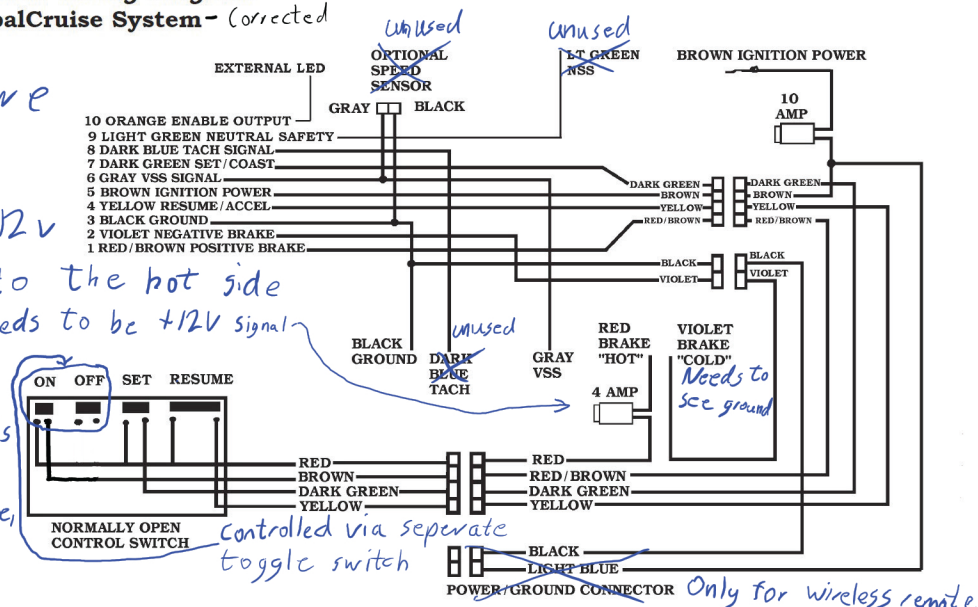 balCruise System- Corrected
unused
unused
OPTIONAL
SPEED
SENSOR
LT GREEN
NSS
BROWN IGNITION POWER
EXTERNAL LED
GRAY
BLACK
10
AMP
10 ORANGE ENABLE OUTPUT
9 LIGHT GREEN NEUTRAL SAFETY
8 DARK BLUE TACH SIGNAL
7 DARK GREEN SET/COAST
6 GRAY VSS SIGNAL
5 BROWN IGNITION POWER
4 YELLOW RESUME/ACCEL
3 BLACK GROUND
2 VIOLET NEGATIVE BRAKE
1 RED/BROWN POSITIVE BRAKE
DARK GREEN
BROWN
YELLOW
RED/BROWN
DARK GREEN
BROWN
YELLOW
RED/BROWN
BLACK
VIOLET
BLACK
VIOLET
12v
to the hot side
eeds to be +12V signal
unused
BLACK
GROUND
DARK
BLUE
TACH
GRAY
VSS
RED
BRAKE
"HOT"
VIOLET
BRAKE
"COLD"
Needs to
see ground
4 AMP
ON OFF SET RESUME
RED
BROWN
DARK GREEN
YELLOW
RED
RED/BROWN
DARK GREEN
YELLOW
NORMALLY OPEN
CONTROL SWITCH
Controlled via seperate
toggle switch
BLACK
LIGHT BLUE
POWER/GROUND CONNECTOR
Only for wireless remote